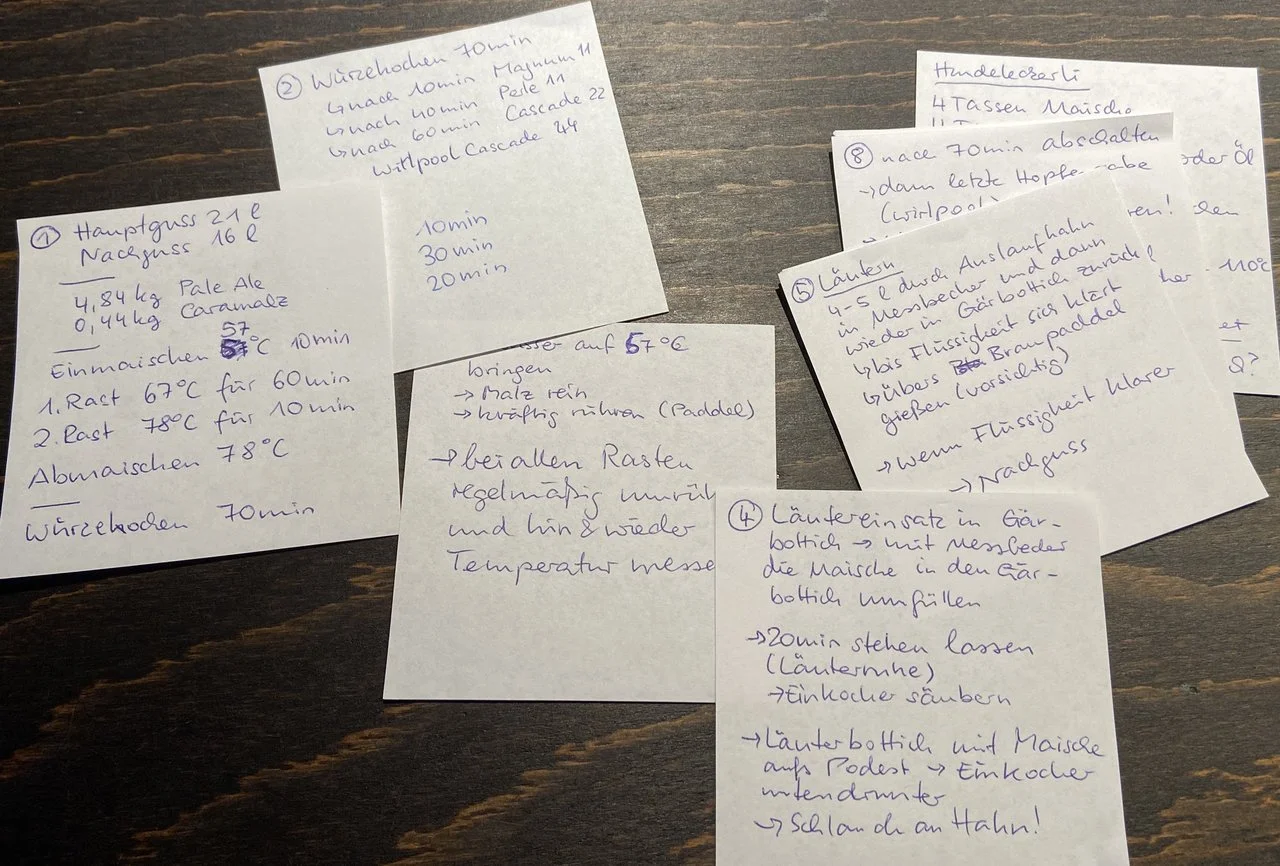 ① Hauptguss 21 l
Nachguss 16 l
4,84 kg Pale Ale
0,44 kg Caramalz
57
Einmaischen °C 10min
1. Rast 67°C für 60min
2. Rast 78°C für 10min
Abmaischen 78°C
Würzekochen 70min
② Würzekochen 70min
↳ nach 10min Magnum 11
↳ nach 40min Perle 11
↳ nach 60min Cascade 22
Wirlpool Cascade 44
10min
30min
20min
auf 57°C
bringen
→ Malz rein
→ kräftig rühren (Paddel)
→ bei allen Rasten
regelmäßig umrüh
und hin & wieder
Temperatur messe
④ Läutereinsatz in Gär-
bottich → mit Messbecher
die Maische in den Gär-
bottich umfüllen
→ 20min stehen lassen
(Läuterruhe)
→ Einkocher säubern
→ Läuterbottich mit Maische
aufs Podest → Einkocher
untendrunter
→ Schlauch an Hahn!
⑤ Läutern
4-5 l durch Auslaufhahn
in Messbecher und dann
wieder in Gärbottich zurück!
↳ bis Flüssigkeit sich klärt
↳ übers Braupaddel
gießen (vorsichtig)
→ wenn Flüssigkeit klarer
→ Nachguss
⑧ nach 70min abschalten
→ dann letzte Hopfe abe
(wirlpool)
ren!
her
Hundeleckerli
4 Tassen Maische
oder Öl
110°C
et
l?